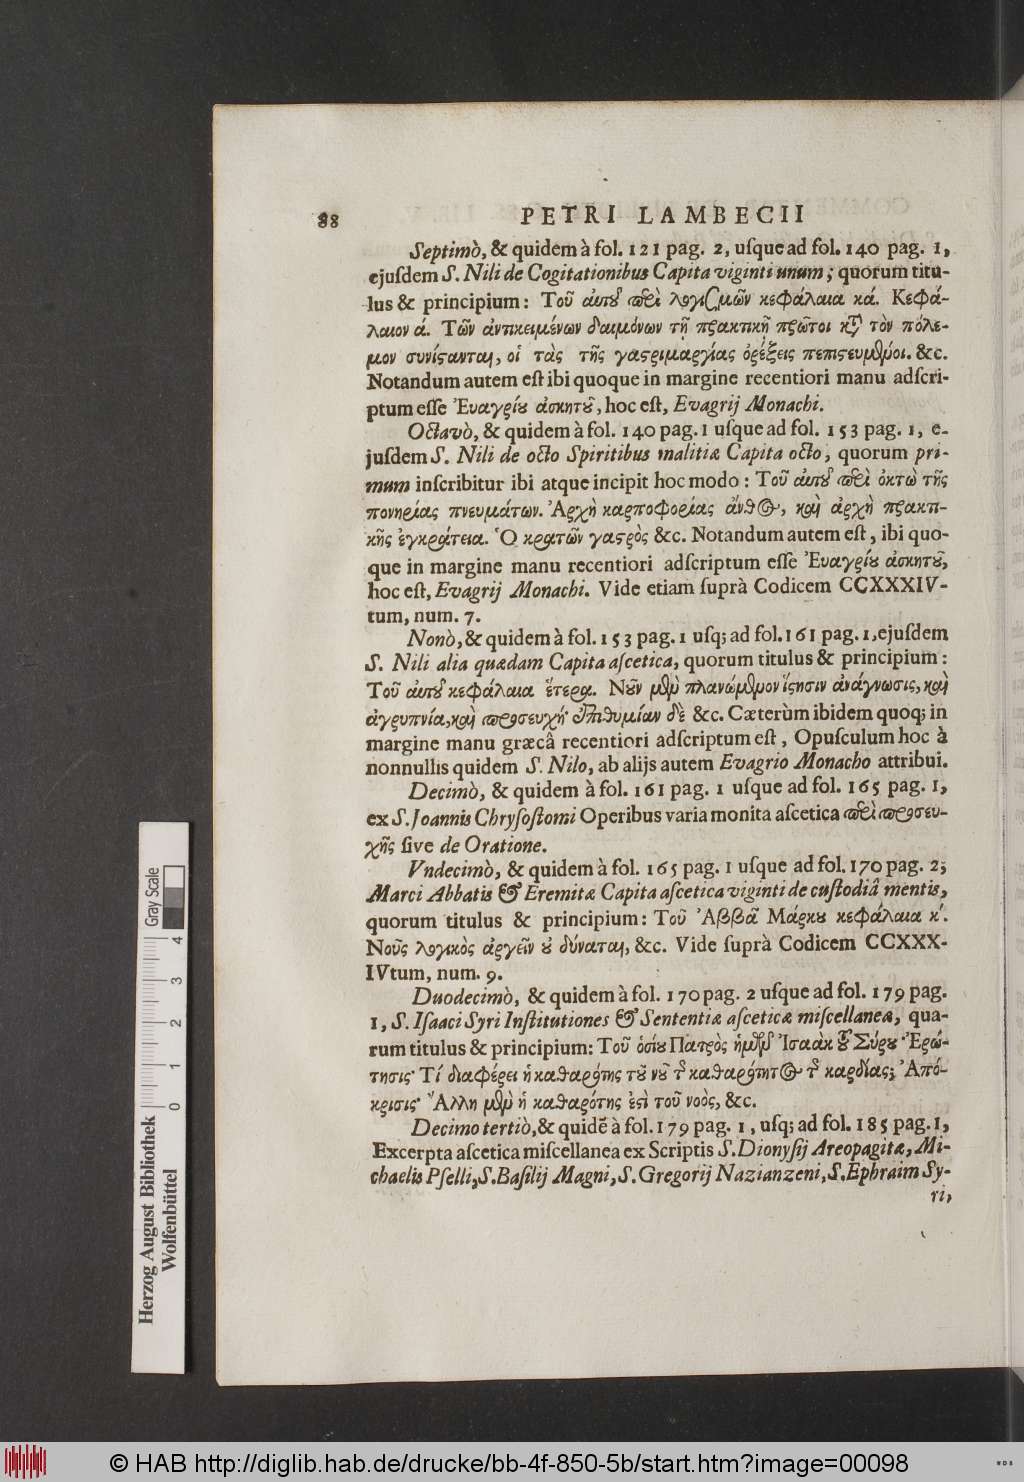 88 PETRI LAMBECII
Septimò, & quidem à fol. 121 pag. 2, uſque ad fol. 140 pag. 1,
ejuſdem S. Nili de Cogitationibus Capita viginti unum; quorum titu-
lus & principium: Τοῦ αὐτοῦ περὶ λογισμῶν κεφάλαια κά. Κεφά-
λαιον ά. Τῶν ἀντικειμένων δαιμόνων τῇ πρακτικῇ πρῶτοι κατὰ τὸν πόλε-
μον συνίστανται, οἱ τὰς τῆς γαστριμαργίας ὀρέξεις πεπιστευμένοι. &c.
Notandum autem eſt ibi quoque in margine recentiori manu adſcri-
ptum eſſe Ἐυαγρίου ἀσκητοῦ, hoc eſt, Evagrij Monachi.
Octavò, & quidem à fol. 140 pag. 1 uſque ad fol. 153 pag. 1, e-
juſdem S. Nili de octo Spiritibus malitiæ Capita octo, quorum pri-
mum inſcribitur ibi atque incipit hoc modo: Τοῦ αὐτοῦ περὶ ὀκτὼ τῆς
πονηρίας πνευμάτων. Ἀρχὴ καρποφορίας ἄνθος, καὶ ἀρχὴ πρακτι-
κῆς ἐγκράτεια. Ὁ κρατῶν γαστρὸς &c. Notandum autem eſt, ibi quo-
que in margine manu recentiori adſcriptum eſſe Ἐυαγρίου ἀσκητοῦ,
hoc eſt, Evagrij Monachi. Vide etiam ſuprà Codicem CCXXXIV-
tum, num. 7.
Nonò, & quidem à fol. 153 pag. 1 uſq; ad fol. 161 pag. 1, ejuſdem
S. Nili alia quædam Capita aſcetica, quorum titulus & principium:
Τοῦ αὐτοῦ κεφάλαια ἕτερα. Νοῦν μὲν πλανώμενον ἵστησιν ἀνάγνωσις, καὶ
ἀγρυπνία, καὶ προσευχή· ἐπιθυμίαν δὲ &c. Cæterùm ibidem quoq; in
margine manu græcâ recentiori adſcriptum eſt, Opuſculum hoc à
nonnullis quidem S. Nilo, ab alijs autem Evagrio Monacho attribui.
Decimò, & quidem à fol. 161 pag. 1 uſque ad fol. 165 pag. 1,
ex S. Joannis Chryſoſtomi Operibus varia monita aſcetica περὶ προσευ-
χῆς ſive de Oratione.
Vndecimò, & quidem à fol. 165 pag. 1 uſque ad fol. 170 pag. 2;
Marci Abbatis & Eremitæ Capita aſcetica viginti de cuſtodiâ mentis,
quorum titulus & principium: Τοῦ Ἀββᾶ Μάρκου κεφάλαια κ΄.
Νοῦς λογικὸς ἀργεῖν οὐ δύναται, &c. Vide ſuprà Codicem CCXXX-
IVtum, num. 9.
Duodecimò, & quidem à fol. 170 pag. 2 uſque ad fol. 179 pag.
1, S. Iſaaci Syri Inſtitutiones & Sententiæ aſceticæ miſcellaneæ, quo-
rum titulus & principium: Τοῦ ὁσίου Πατρὸς ἡμῶν Ἰσαὰκ τοῦ Σύρου· Ἐρώ-
τησις· Τί διαφέρει ἡ καθαρότης τοῦ νοῦ τῆς καθαρότητος τῆς καρδίας; Ἀπό-
κρισις· Ἄλλη μὲν ἡ καθαρότης ἐστὶ τοῦ νοὸς, &c.
Decimo tertiò, & quidē à fol. 179 pag. 1, uſq; ad fol. 185 pag. 1,
Excerpta aſcetica miſcellanea ex Scriptis S. Dionyſij Areopagitæ, Mi-
chaelis Pſelli, S. Baſilij Magni, S. Gregorij Nazianzeni, S. Ephraim Sy-
ri,
Herzog August Bibliothek
Wolfenbüttel
0 1 2 3 4
Gray Scale
© HAB http://diglib.hab.de/drucke/bb-4f-850-5b/start.htm?image=00098